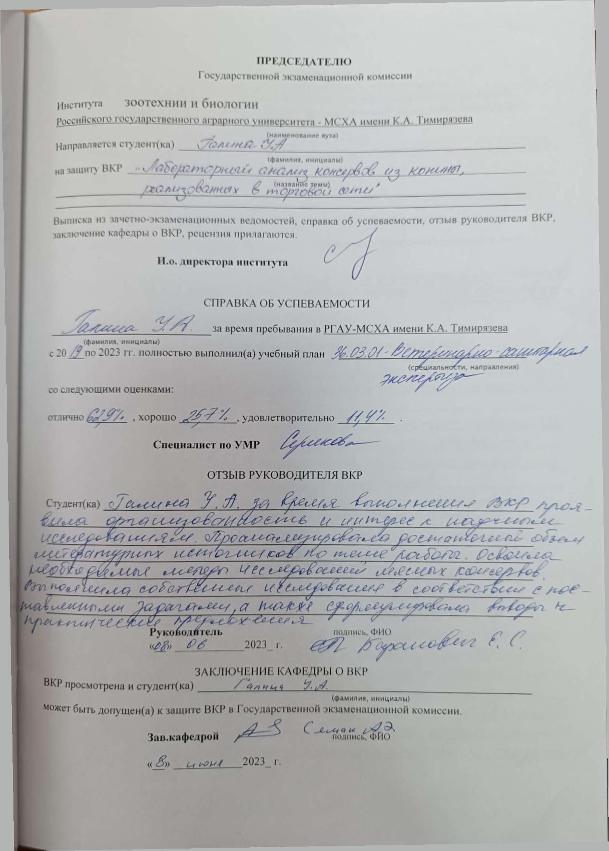 ПРЕДСЕДАТЕЛЮ
Государственной экзаменационной комиссии
Института зоотехнии и биологии
Российского государственного аграрного университета - МСХА имени К.А. Тимирязева
(наименование вуза)
Направляется студент(ка) Галина У.А
(фамилия, инициалы)
на защиту ВКР "Лабораторный анализ консервов из конины,
(название темы)
реализованных в торговой сети"
Выписка из зачетно-экзаменационных ведомостей, справка об успеваемости, отзыв руководителя ВКР,
заключение кафедры о ВКР, рецензия прилагаются.
И.о. директора института
СПРАВКА ОБ УСПЕВАЕМОСТИ
Галина У.А. за время пребывания в РГАУ-МСХА имени К.А. Тимирязева
(фамилия, инициалы)
с 2019 по 2023 гг. полностью выполнил(а) учебный план 36.03.01-Ветеринарно-санитарная
(специальности, направления)
экспертиза
со следующими оценками:
отлично 62,9% , хорошо 25,7% , удовлетворительно 11,4% .
Специалист по УМР
ОТЗЫВ РУКОВОДИТЕЛЯ ВКР
Студент(ка) Галина У.А. за время выполнения ВКР проя-
вила организованность и интерес к научным
исследованиям. Проанализировала достаточный объем
литературных источников по теме работы. Освоила
необходимые методы исследований мясных консервов.
Выполнила собственные исследования в соответствии с пос-
тавленными задачами, а также сформулировала выводы и
практические предложения
Руководитель
подпись, ФИО
«08» 06 2023_ г. Баранович Е. С.
ЗАКЛЮЧЕНИЕ КАФЕДРЫ О ВКР
ВКР просмотрена и студент(ка) Галина У.А.
(фамилия, инициалы)
может быть допущен(а) к защите ВКР в Государственной экзаменационной комиссии.
Зав.кафедрой
подпись, ФИО
«8» июня 2023_ г.